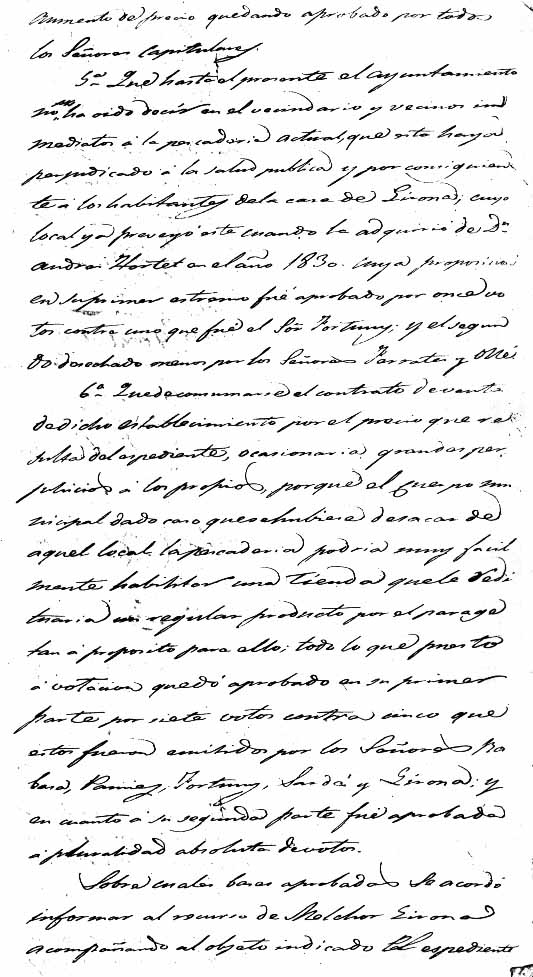 Aumento de precio quedando aprobado por todos
los Señores Capitulares.
5ª Que hasta el presente el ayuntamiento
no ha oido decir en el vecindario y vecinos in
mediatos á la pescaderia actual, que esta haya
perjudicado á la salud publica y por consiguien
te á los habitantes de la casa de Girona, cuyo
local ya preveyó este cuando la adquirió de Dn
Andres Hortet en el año 1830. cuya proposicion
en su primer estremo fué aprobado por once vo
tos contra uno que fué el Sor Fortuny; y el segun
do desechado menos por los Señores Ferrater y
6ª Que de consumarse el contrato de venta
de dicho establecimiento por el precio que re
sulta del espediente, ocasionaria grandes per
juicios á los propios, porque el Cuerpo mu
nicipal dado caso que se hubiese de sacar de
aquel local la pescaderia podria muy facil
mente habilitar una Tienda que le redi
tuaria un regular producto por el parage
tan á proposito para ello; todo lo que puesto
á votacion quedó aprobado en su primer
parte por siete votos contra cinco que
estos fueron emitidos por los Señores Ra
basa, Pamies, Fortuny, Sardá y Girona; y
en cuanto á su segunda parte fué aprobada
á pluralidad absoluta de votos.
Sobre cuales bases aprobadas Se acordó
informar al recurso de Melchor Girona
acompañando al objeto indicado El espediente